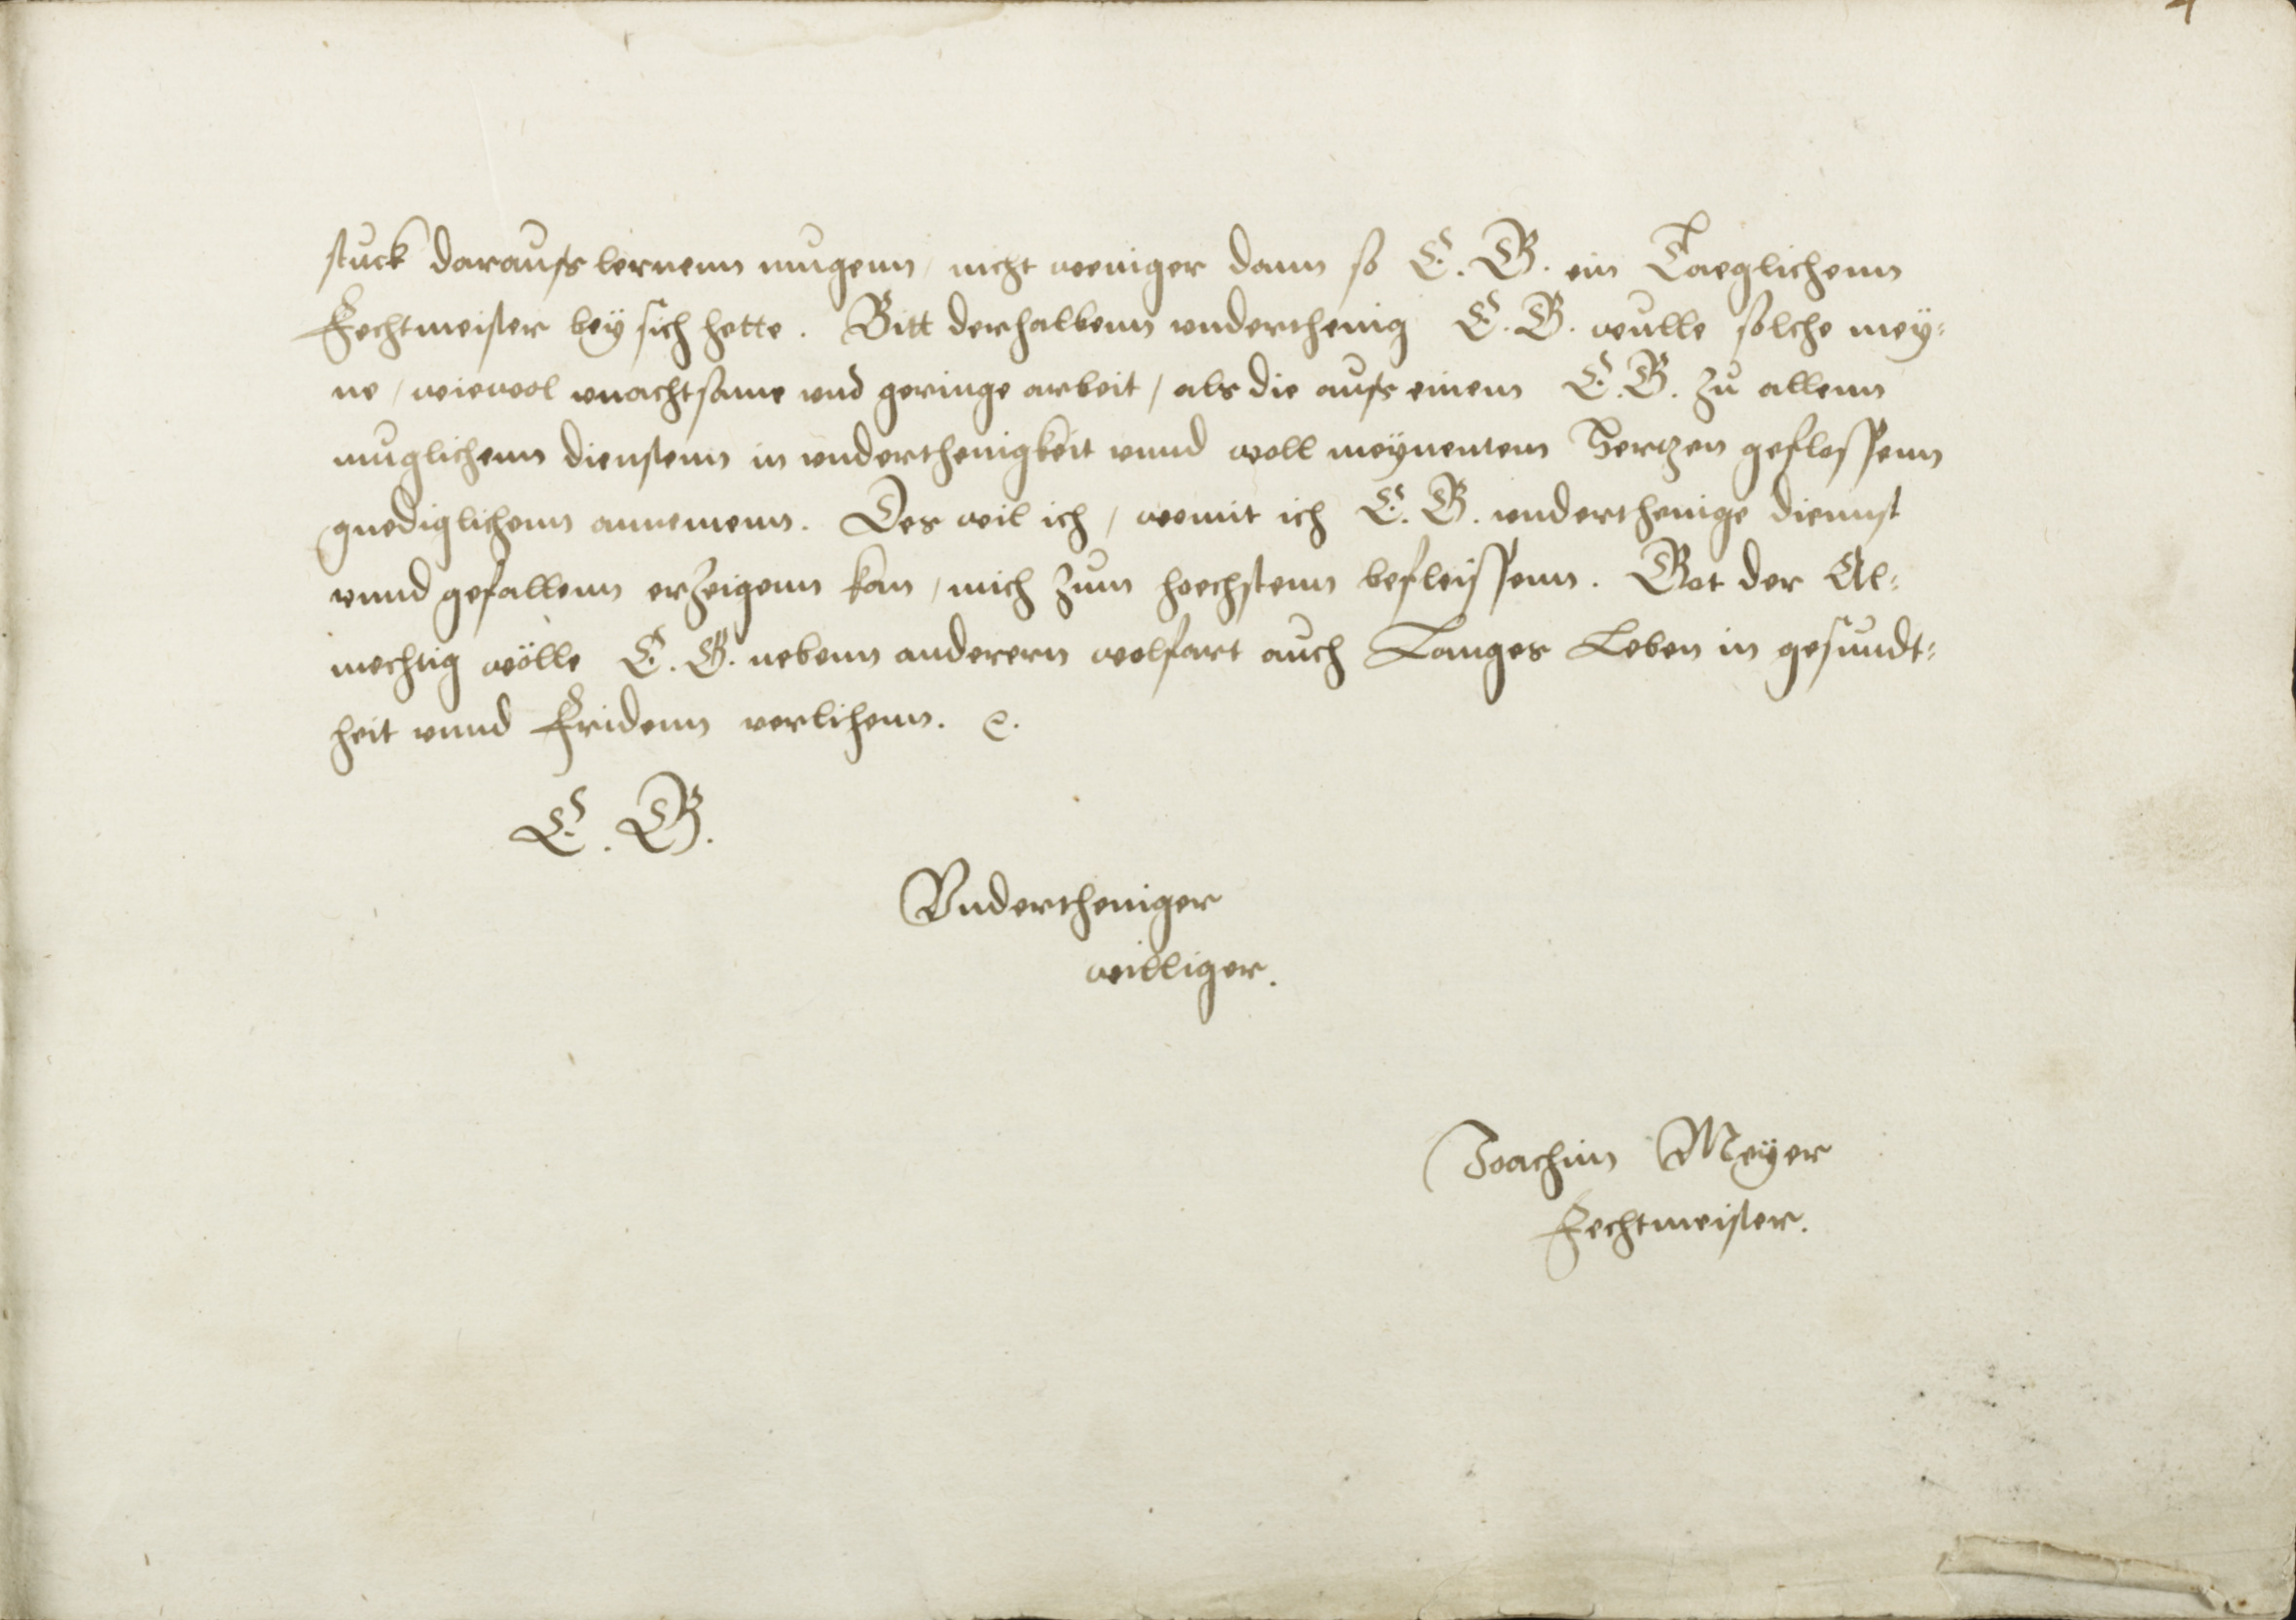 4
stuck darauss lernenn mugenn / nicht weniger dann so E. G. ein Taeglichenn
Fechtmeister beÿ sich hette. Bitt derhalbenn underthenig E. G. wulle solche meÿ=
ne / wiewol unachtsame und geringe arbeit / als die auss einem E. G. zu allenn
muglichenn dienstenn in underthenigkeit unnd woll meÿnentem Hertzen geflossenn
gnediglichenn annemenn. Des wil ich / womit ich E. G. underthenige diennst
unnd gefallenn erzeigenn kan / mich zum hoechstenn befleissenn. Got der Al=
mechtig wölle E. G. nebenn anderern wolfart auch Langes Leben in gesundt=
heit unnd Fridenn verlihenn. &.
E. G.
Undertheniger
williger.
Joachim Meÿer
Fechtmeister.